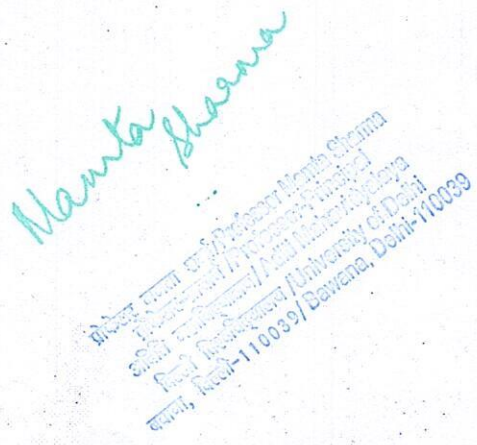 Mamta
Sharma
प्रोफेसर ममता शर्मा/Professor Mamta Sharma
/Professor-Principal
अदिति महाविद्यालय/Aditi Mahavidyalaya
दिल्ली विश्वविद्यालय/University of Delhi
बवाना, दिल्ली-110039/Bawana, Delhi-110039